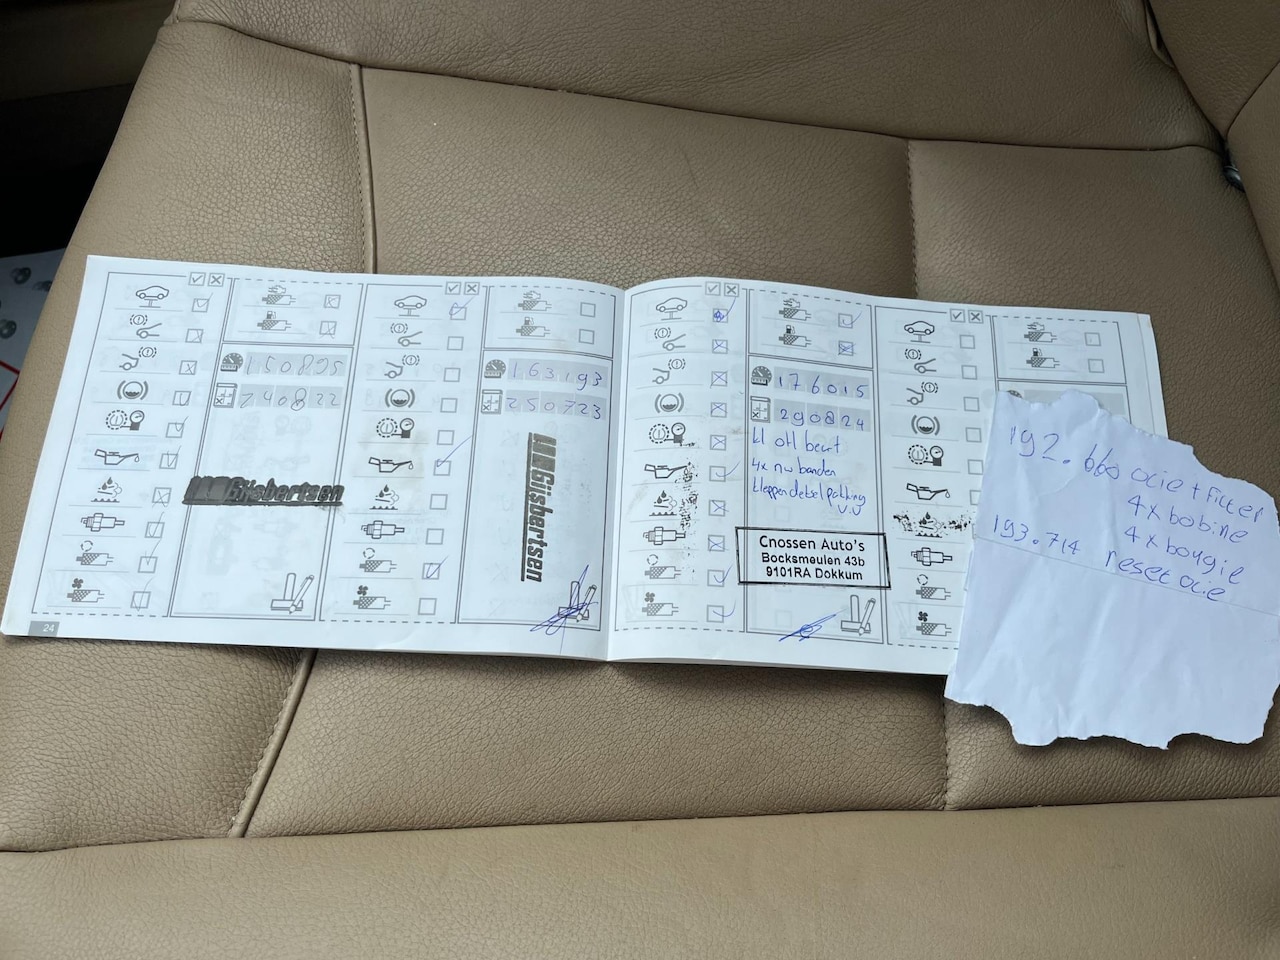 150895
240822
Gijsbertsen
24
163193
250723
Gijsbertsen
176015
290824
kl oll beurt
4x nw banden
kleppendeksel pakking
V.V
Cnossen Auto's
Bocksmeulen 43b
9101RA Dokkum
192.660 ocie + Filter
4x bobine
4x bougie
193.714 reset ocie